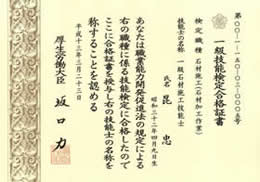 第〇〇一-一五〇-〇三-〇〇〇五号
一級技能検定合格証書
検定職種 石材施工(石材加工作業)
技能士の名称 一級石材施工技能士
氏名 昆 忠
昭和二十二年四月九日生
あなたは職業能力開発促進法の規定による
右の職種に係る技能検定に合格したので
ここに合格証書を授与し右の技能士の名称を
称することを認める
平成十三年三月二十三日
厚生労働大臣 坂口 力